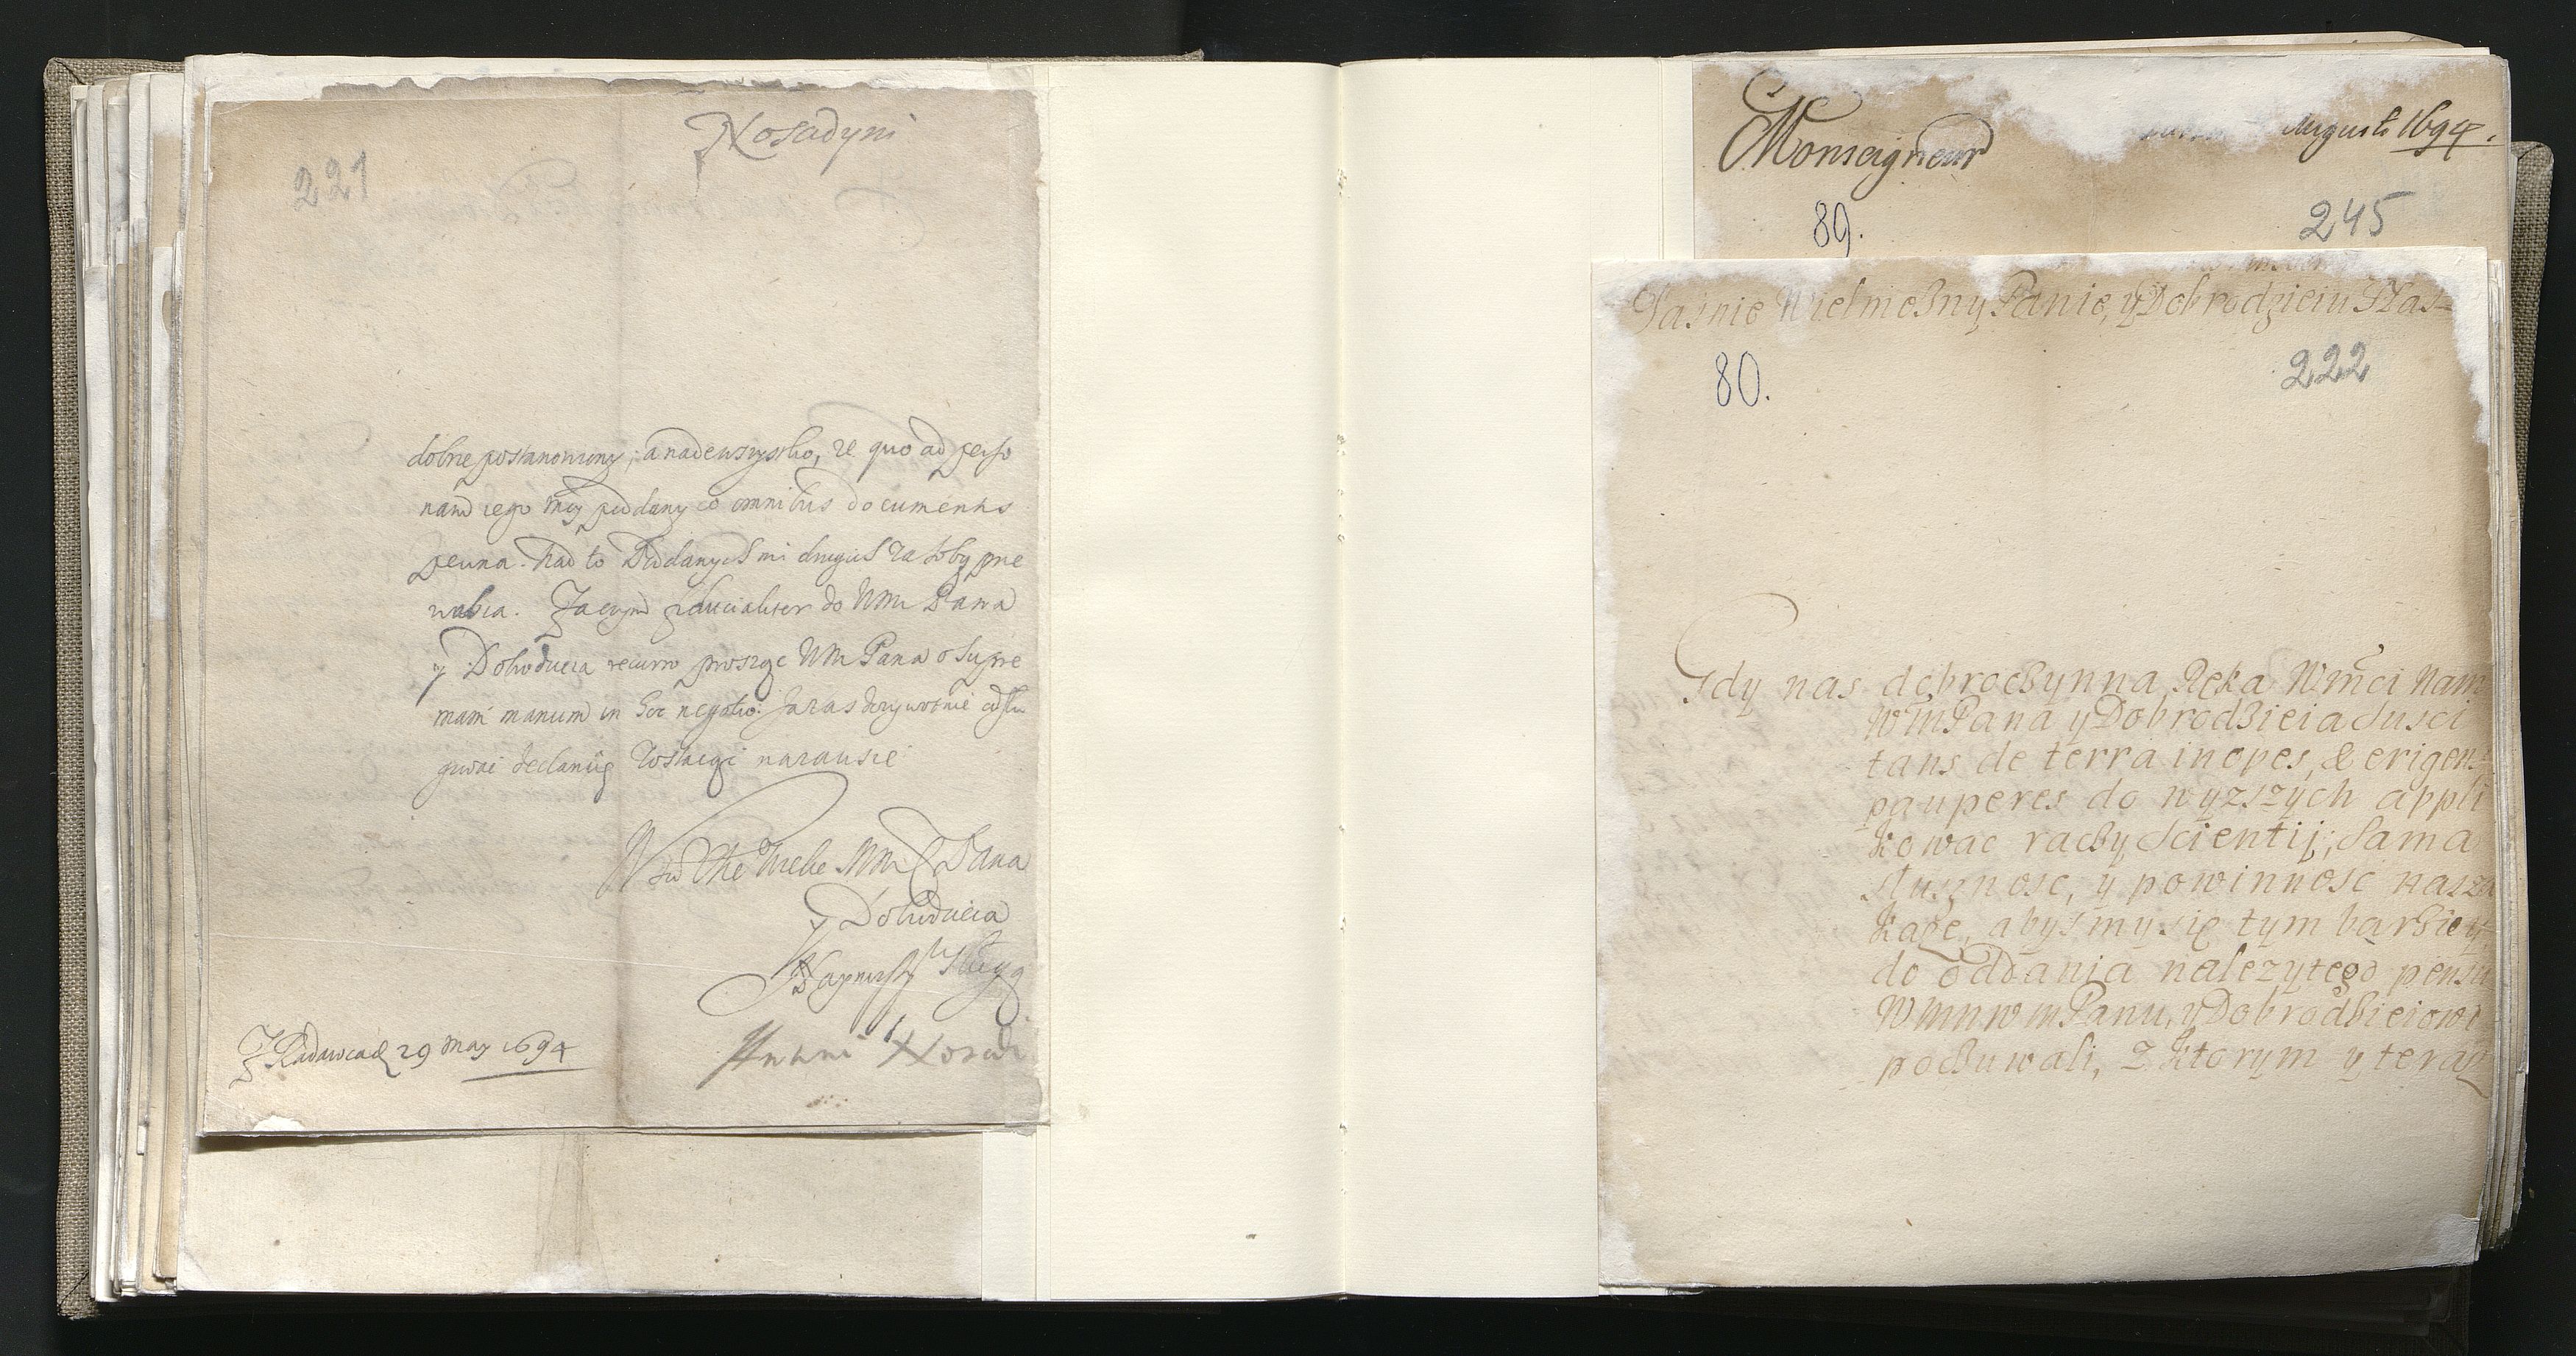 Nosadyni
221
dobrze postanowiony; a nadewszystko, ze quo ad perso
nam iego moy poddany co omnibus documentis
pewna. Nad to Poddanych mi drugich za sobą prze
wabia. Zaczym fiducialiter do Wm Pana
y Dobrodzieia recurro prosząc Wm Pana o supre
mam manum in hoc negotio. Zaras dozywotnie odsłu
guiąc zostaię nazawsze
Wm Pana
y Dobrodzieia
sługą
Z Radawca d 29 May 1694
Monseigneur
Augusti 1694.
89.
245
Jasnie Wielmożny Panie, y Dobrodzieiu Łas=
80.
222
Gdy nas dobroczynna Ręka Wmci Nam
Wm Pana y Dobrodzieia Susci
tans de terra inopes, & erigens
pauperes do wyzszych appli
kowac raczy Scientij; Sama
słusznosc, y powinnosc nasza
każe, abysmy się tym bardziey
do oddania nalezytego pensu
Wmnwm Panu, y Dobrodzieiowi
poczuwali, z ktorym y teraz